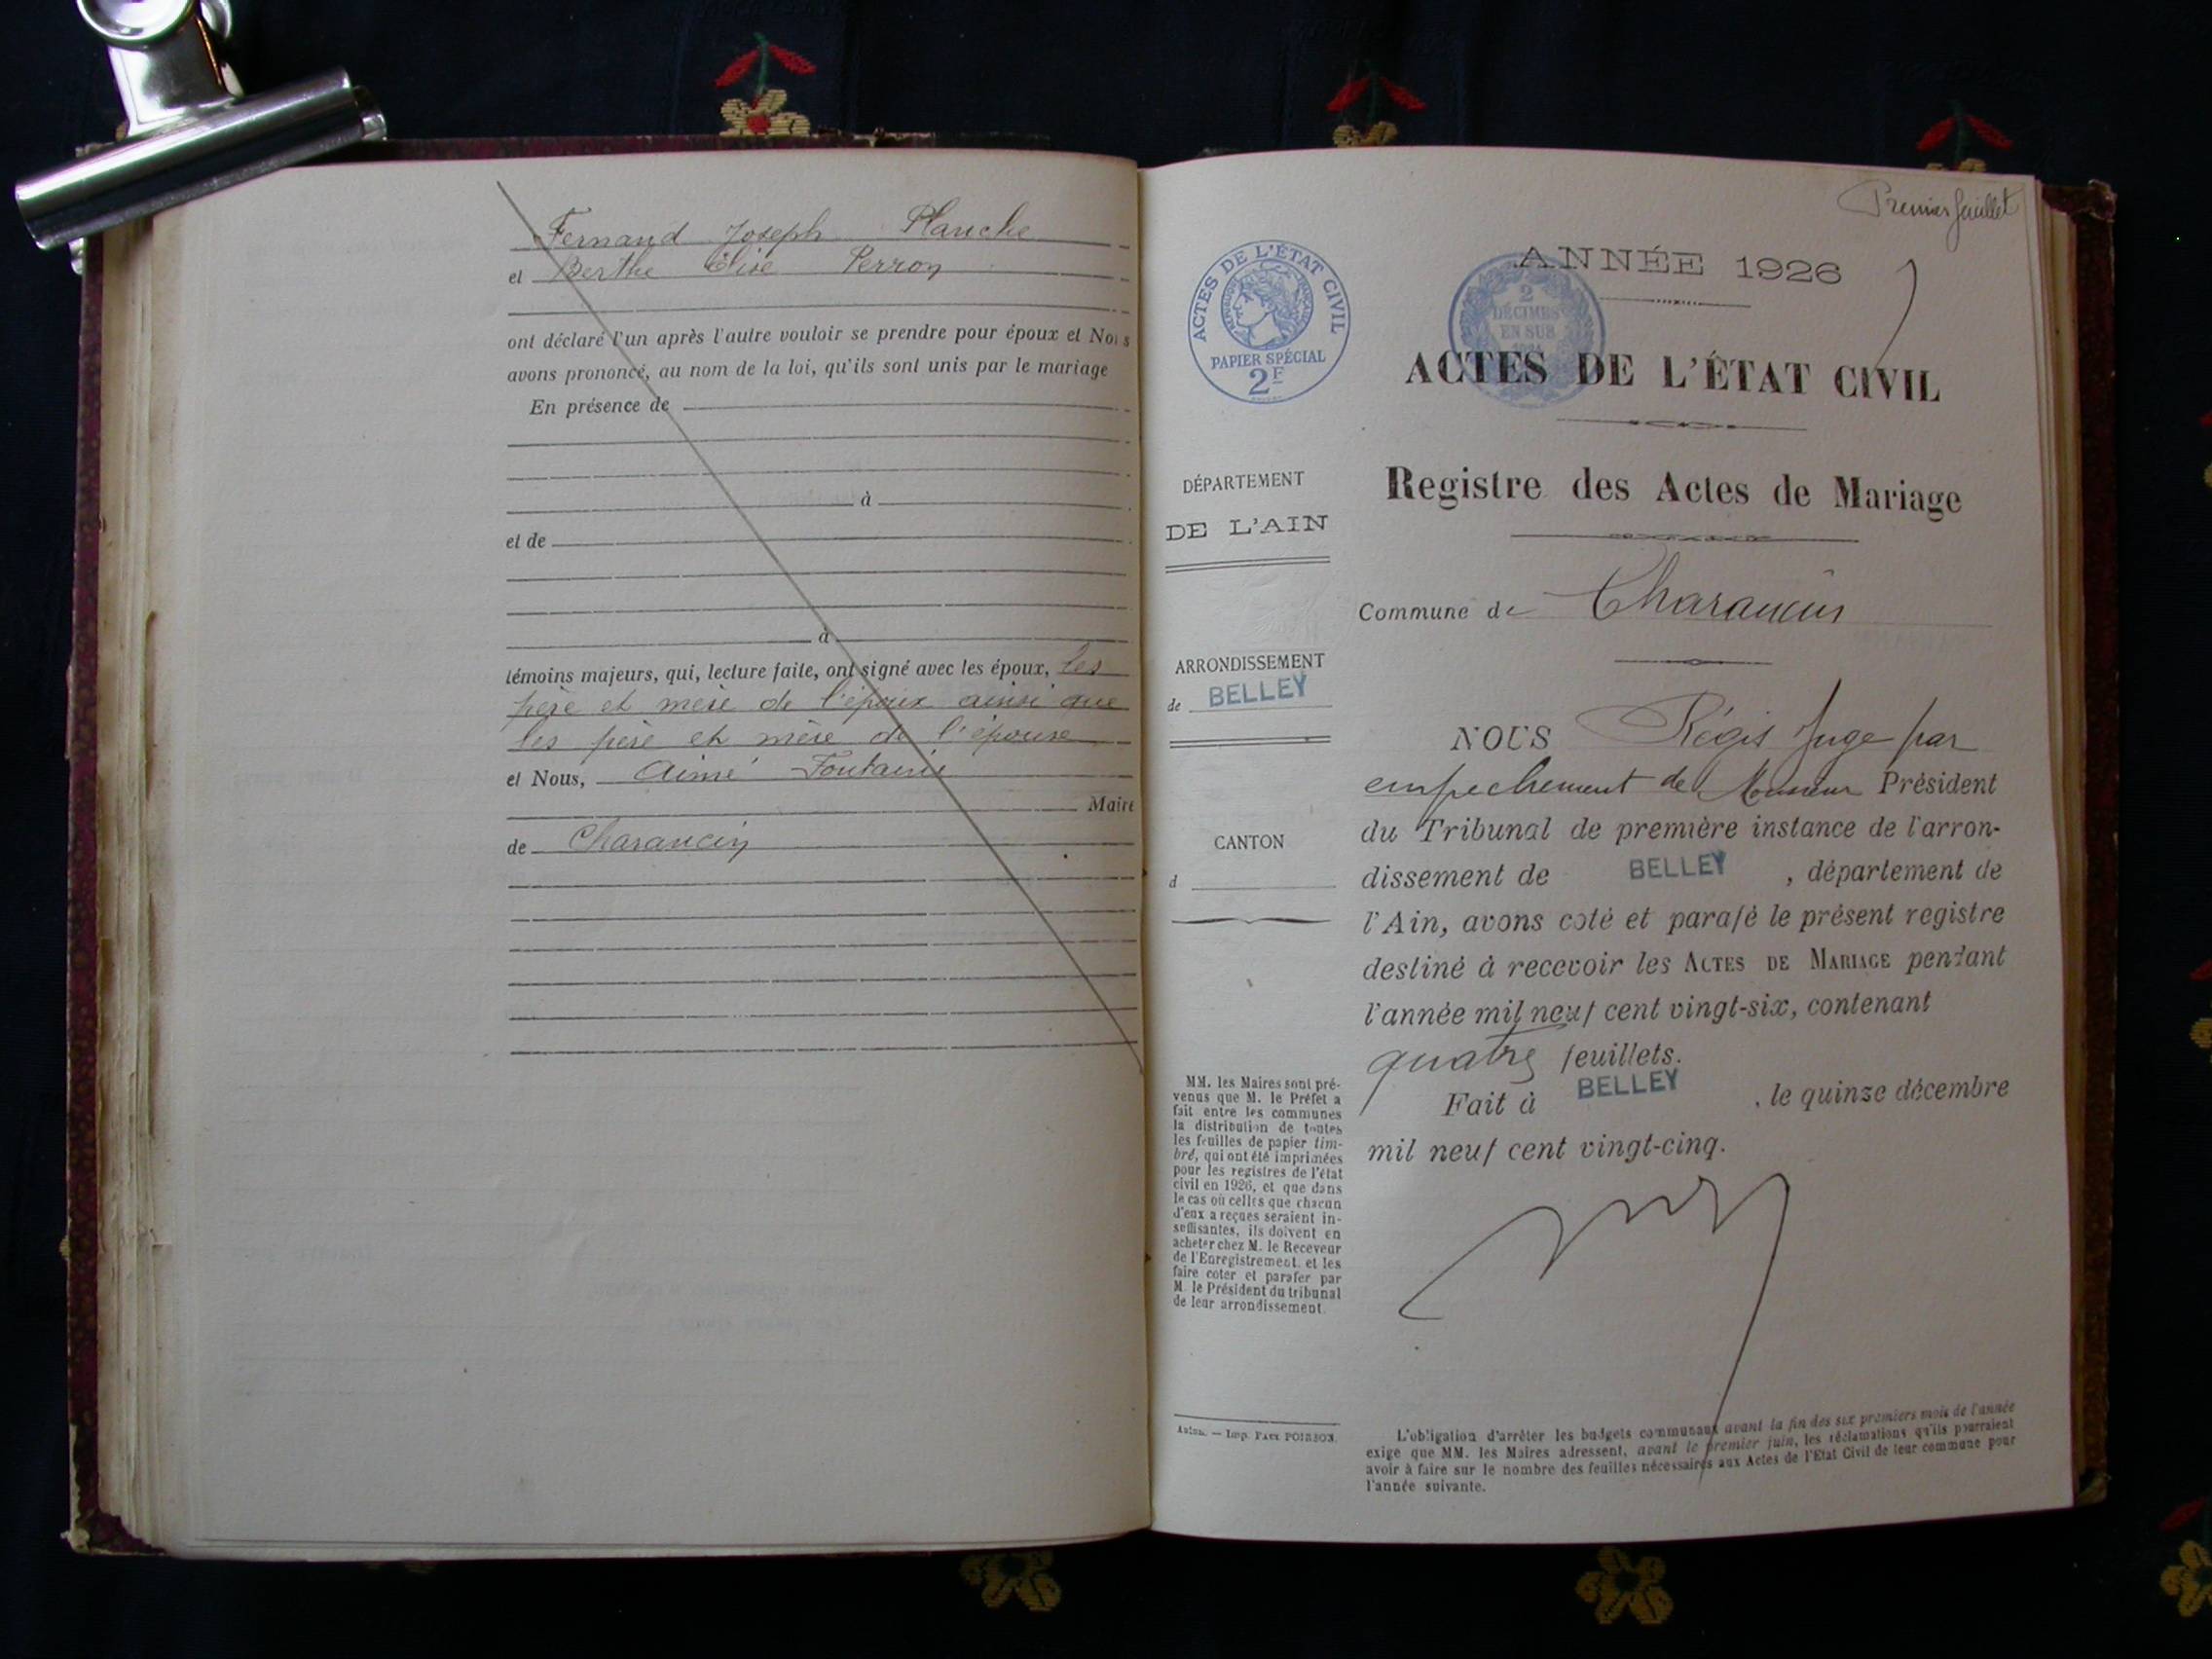 Fernand Joseph Planche
et Berthe Elise Perron
ont déclaré l'un après l'autre vouloir se prendre pour époux et Nous
avons prononcé, au nom de la loi, qu'ils sont unis par le mariage
En présence de
à
et de
à
témoins majeurs, qui, lecture faite, ont signé avec les époux, les
père et mère de l'époux ainsi que
les père et mère de l'épouse
et Nous, Aimé Fontaine
Maire
de Charancin
Premier feuillet
ANNÉE 1926
ACTES DE L'ÉTAT CIVIL
RÉPUBLIQUE FRANÇAISE
PAPIER SPÉCIAL
2F
2
DÉCIMES
EN SUS
ACTES DE L'ÉTAT CIVIL
Registre des Actes de Mariage
Commune de Charancin
DÉPARTEMENT
DE L'AIN
ARRONDISSEMENT
de BELLEY
CANTON
d
MM. les Maires sont pré-
venus que M. le Préfet a
fait entre les communes
la distribution de toutes
les feuilles de papier tim-
bré, qui ont été imprimées
pour les registres de l'état
civil en 1926, et que dans
le cas où celles que chacun
d'eux a reçues seraient in-
suffisantes, ils doivent en
acheter chez M. le Receveur
de l'Enregistrement. et les
faire coter et parafer par
M. le Président du tribunal
de leur arrondissement.
Autun. — Imp. PAUL POIRSON.
NOUS Régis Juge par
empechement de Monsieur Président
du Tribunal de première instance de l'arron-
dissement de BELLEY , département de
l'Ain, avons coté et parafé le présent registre
destiné à recevoir les ACTES DE MARIAGE pendant
l'année mil neuf cent vingt-six, contenant
quatre feuillets.
Fait à BELLEY , le quinze décembre
mil neuf cent vingt-cinq.
L'obligation d'arrêter les budgets communaux avant la fin des six premiers mois de l'année
exige que MM. les Maires adressent, avant le premier juin, les réclamations qu'ils pourraient
avoir à faire sur le nombre des feuilles nécessaires aux Actes de l'Etat Civil de leur commune pour
l'année suivante.